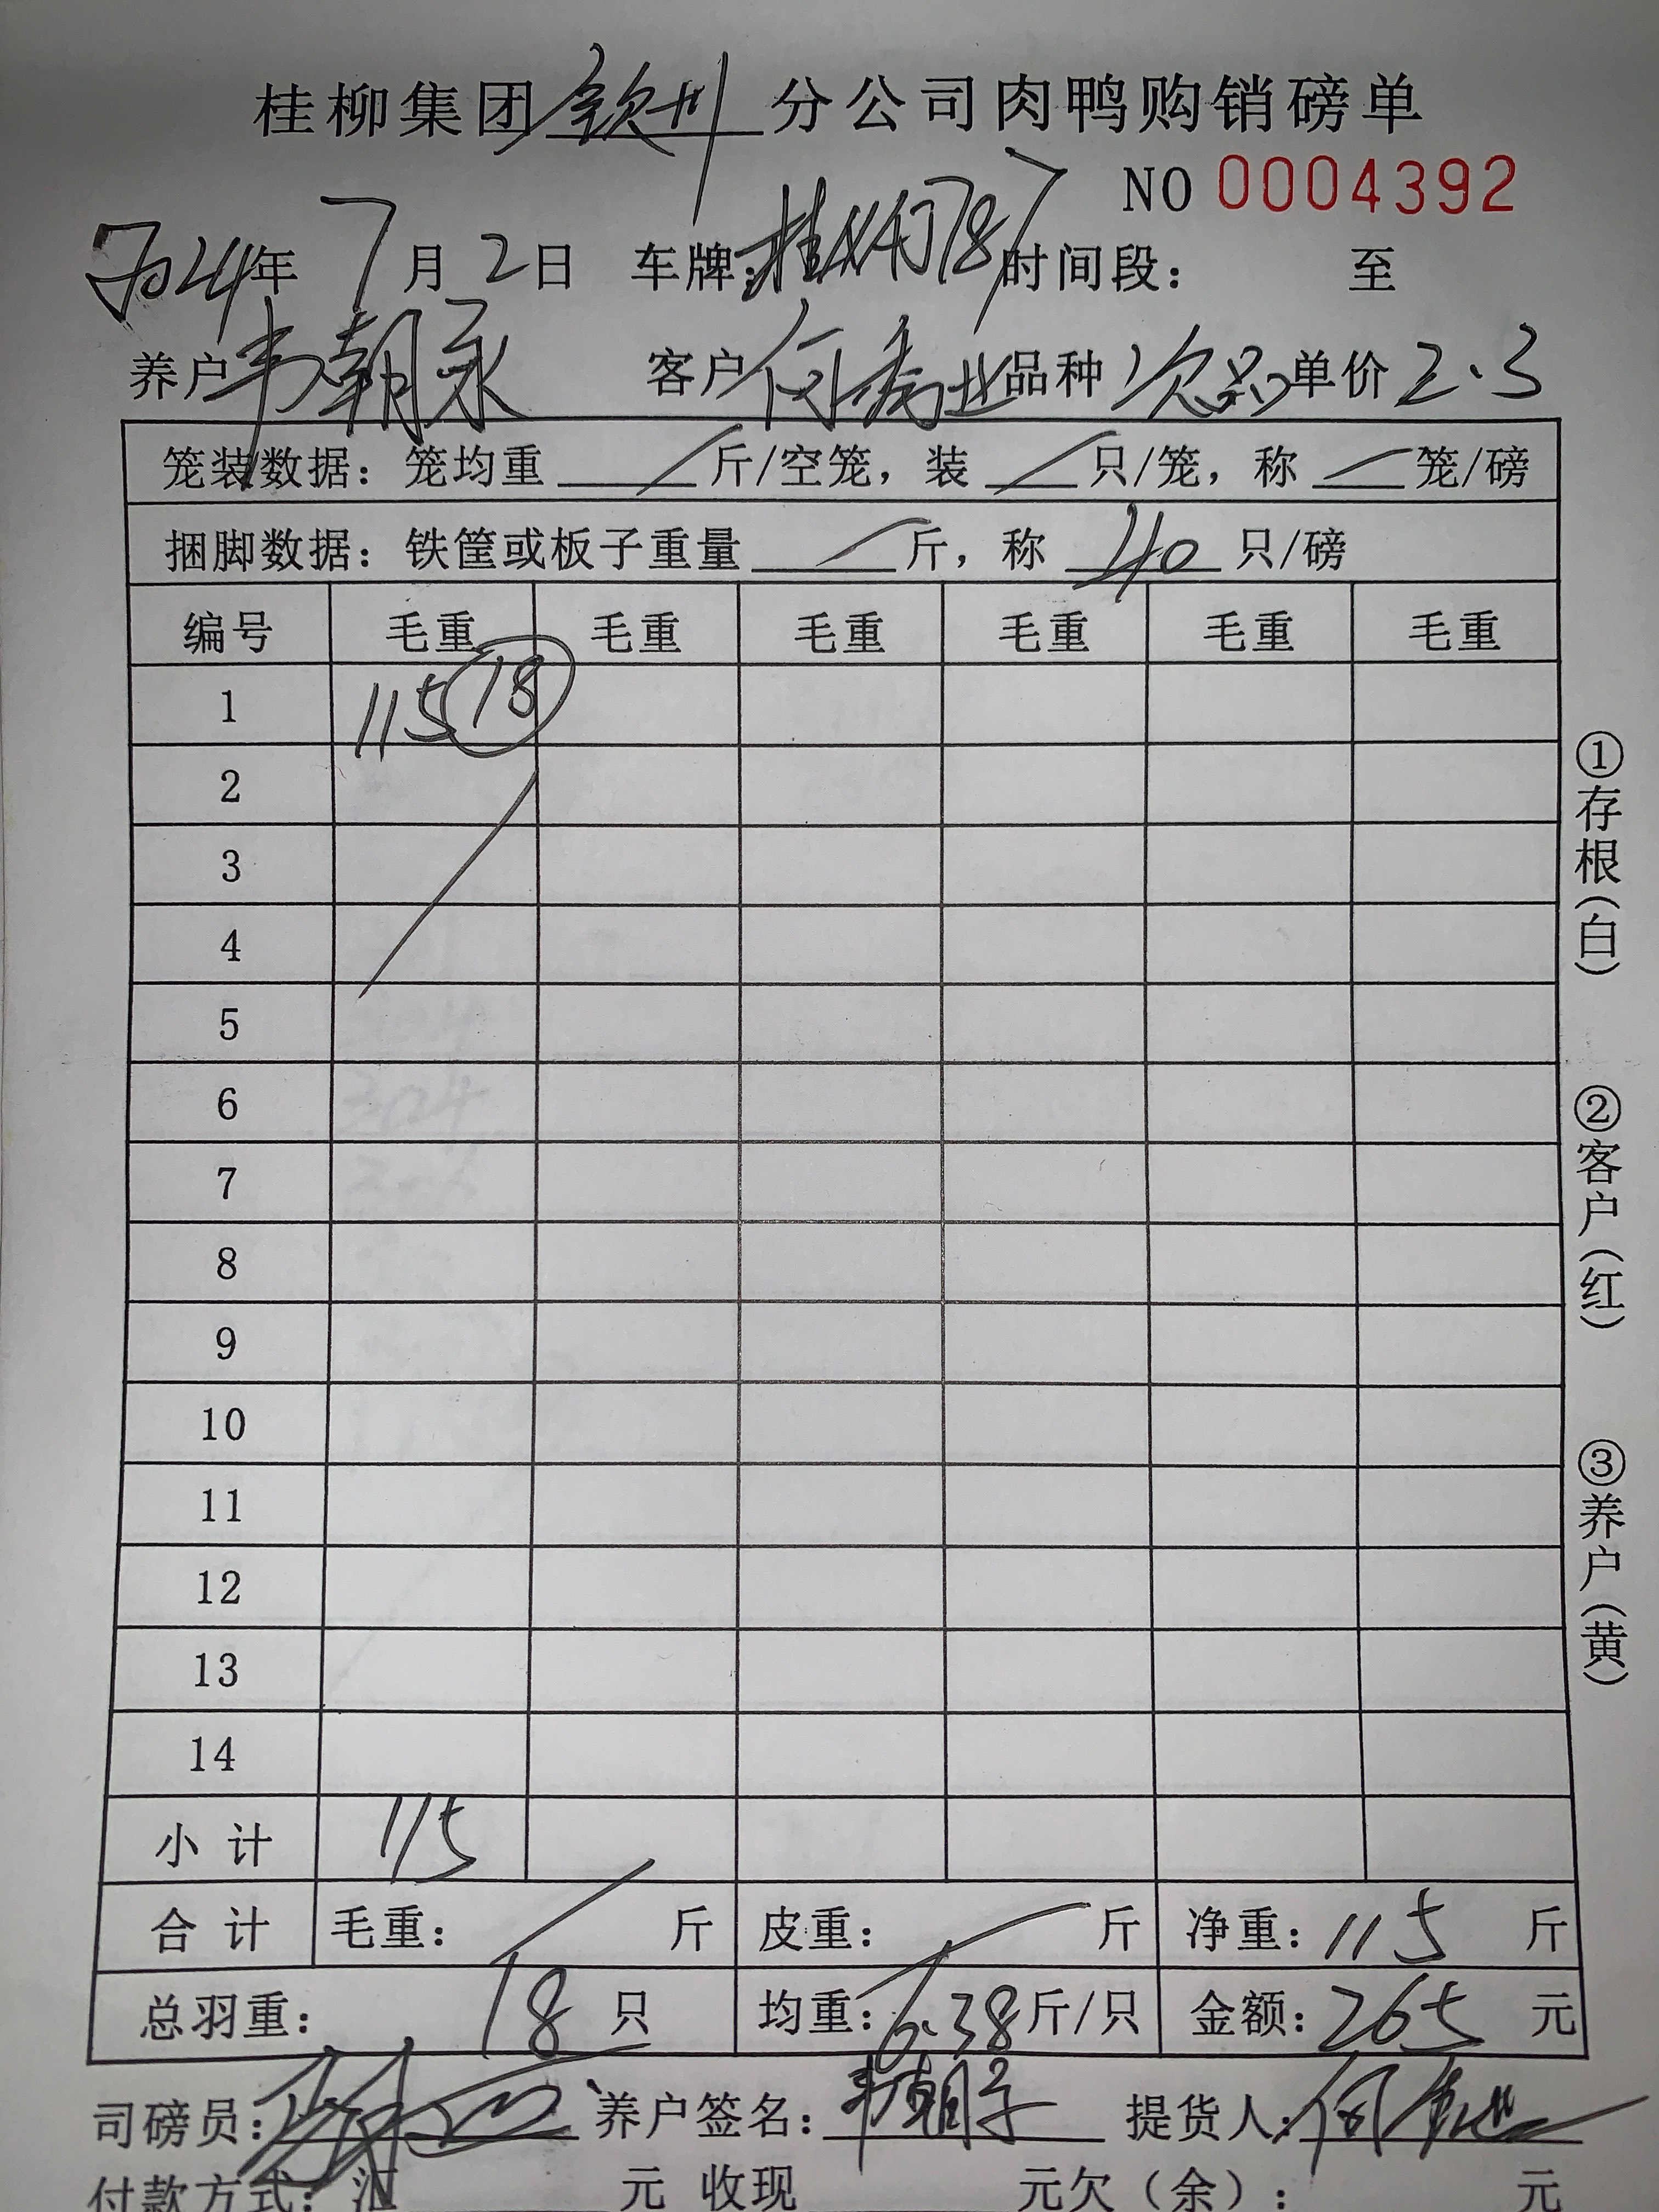 桂柳集团钦州分公司肉鸭购销磅单
NO 0004392
2024年 7月 2日 车牌: 时间段: 至
养户 韦朝永 客户 何 业 品种 次品 单价 2.3
笼装数据: 笼均重 斤/空笼, 装 只/笼, 称 笼/磅
捆脚数据: 铁筐或板子重量 斤, 称 40 只/磅
编号 毛重 毛重 毛重 毛重 毛重 毛重
1 115 18
2
3
4
5
6
7
8
9
10
11
12
13
14
小计 115
合计 毛重: 斤 皮重: 斤 净重: 115 斤
总羽重: 18 只 均重: 6.38 斤/只 金额: 265 元
司磅员: 养户签名: 韦朝 提货人: 何
付款方式: 汇 元 收现 元欠(余): 元
①存根(白)
②客户(红)
③养户(黄)